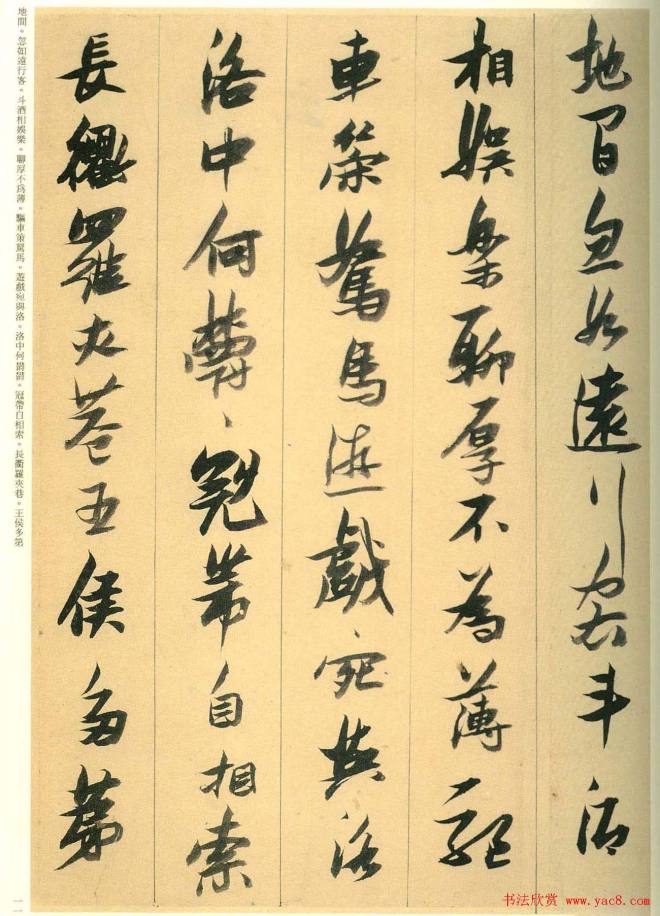 地間忽如遠行客斗酒
相娛樂聊厚不為薄驅
車策駑馬遊戲宛與洛
洛中何鬱〻冠帶自相索
長衢羅夾巷王侯多第
地間。忽如遠行客。斗酒相娛樂。聊厚不為薄。驅車策駑馬。遊戲宛與洛。洛中何鬱鬱。冠帶自相索。長衢羅夾巷。王侯多第
一一
书法欣赏 www.yac8.com